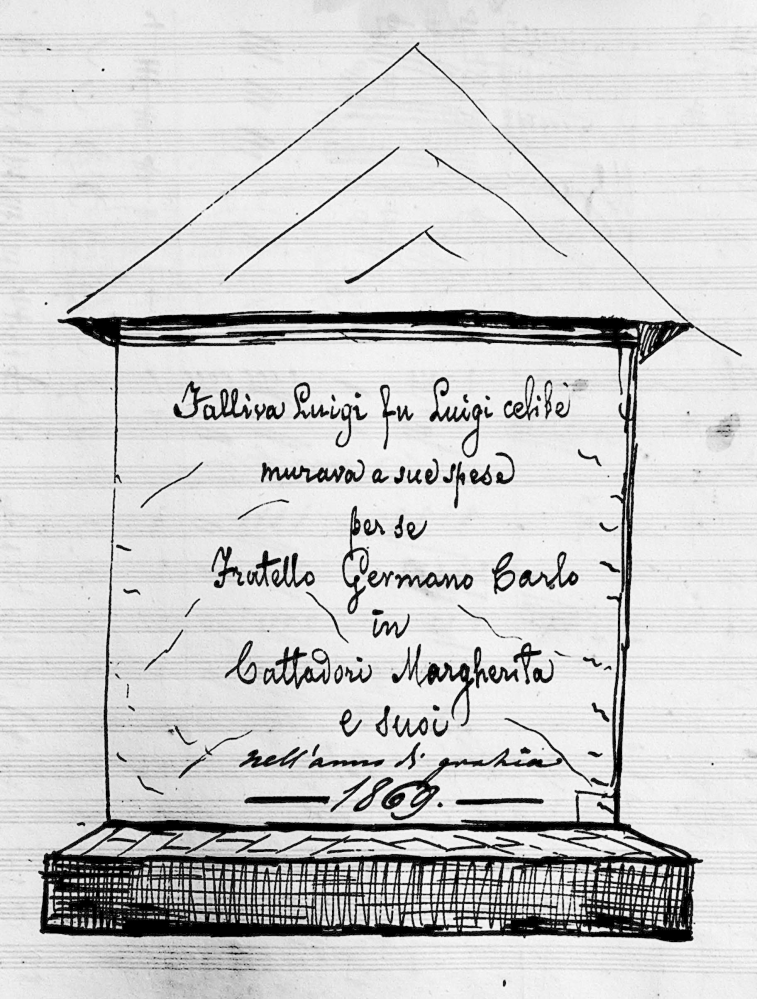 Falliva Luigi fu Luigi celibe
murava a sue spese
per se
Fratello Germano Carlo
in
Cattadori Margherita
e suoi
nell'anno di grazia
1869.